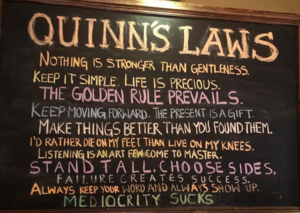 QUINN'S LAWS
NOTHING IS STRONGER THAN GENTLENESS.
KEEP IT SIMPLE. LIFE IS PRECIOUS.
THE GOLDEN RULE PREVAILS.
KEEP MOVING FORWARD. THE PRESENT IS A GIFT.
MAKE THINGS BETTER THAN YOU FOUND THEM.
I'D RATHER DIE ON MY FEET THAN LIVE ON MY KNEES.
LISTENING IS AN ART FEW COME TO MASTER.
STAND TALL. CHOOSE SIDES.
FAILURE CREATES SUCCESS.
ALWAYS KEEP YOUR WORD AND ALWAYS SHOW UP.
MEDIOCRITY SUCKS